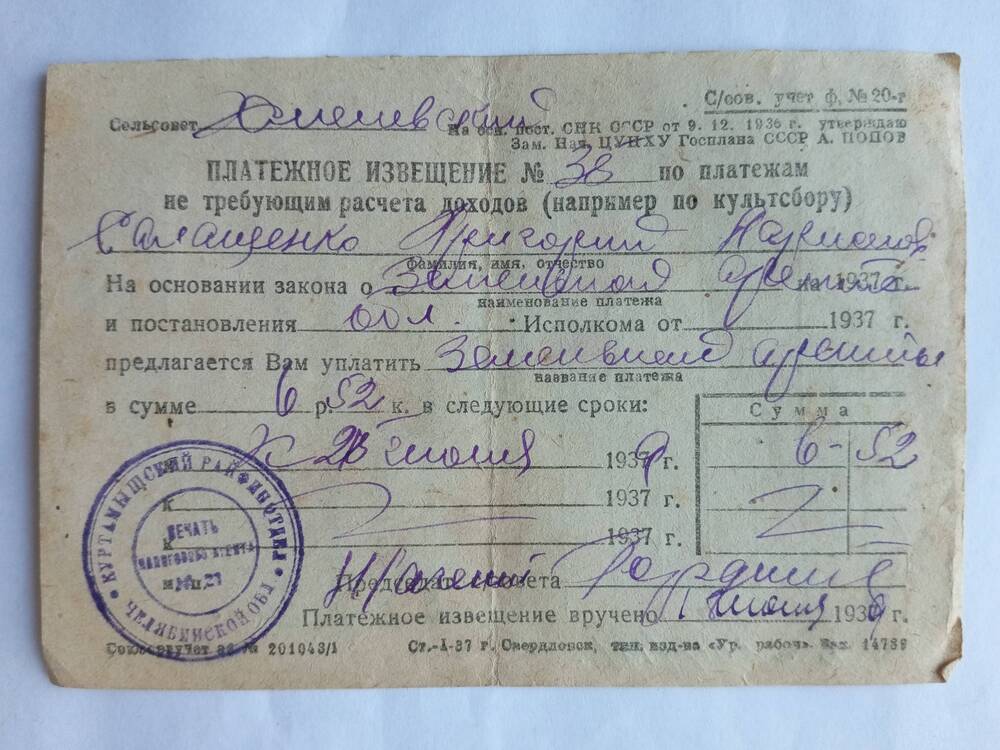 С/сов. учет ф. № 20-г
Сельсовет
На осн. пост. СНК СССР от 9. 12. 1936 г. утверждаю
Зам. Нач. ЦУНХУ Госплана СССР А. ПОПОВ
ПЛАТЕЖНОЕ ИЗВЕЩЕНИЕ № 38 по платежам
не требующим расчета доходов (например по культсбору)
Салащенко Григорий
фамилия, имя, отчество
На основании закона о Земельной аренте на 1937 г.
наименование платежа
и постановления обл. Исполкома от 1937 г.
предлагается Вам уплатить Земельной аренты
название платежа
в сумме 6 р. 52 к. в следующие сроки:
Сумма
К июля 193 г. 6 - 52
к 1937 г.
1937 г.
Председат. совета
Платежное извещение вручено июля 193 г.
Союзоргучет № 201043/1 Ст.-А-37 г. Свердловск, тип. изд-ва «Ур. рабоч». Зак. 14739
КУРТАМЫШСКИЙ РАЙФИНОТДЕЛ
ЧЕЛЯБИНСКОЙ ОБЛ
ПЕЧАТЬ
НАЛОГОВОГО АГЕНТА